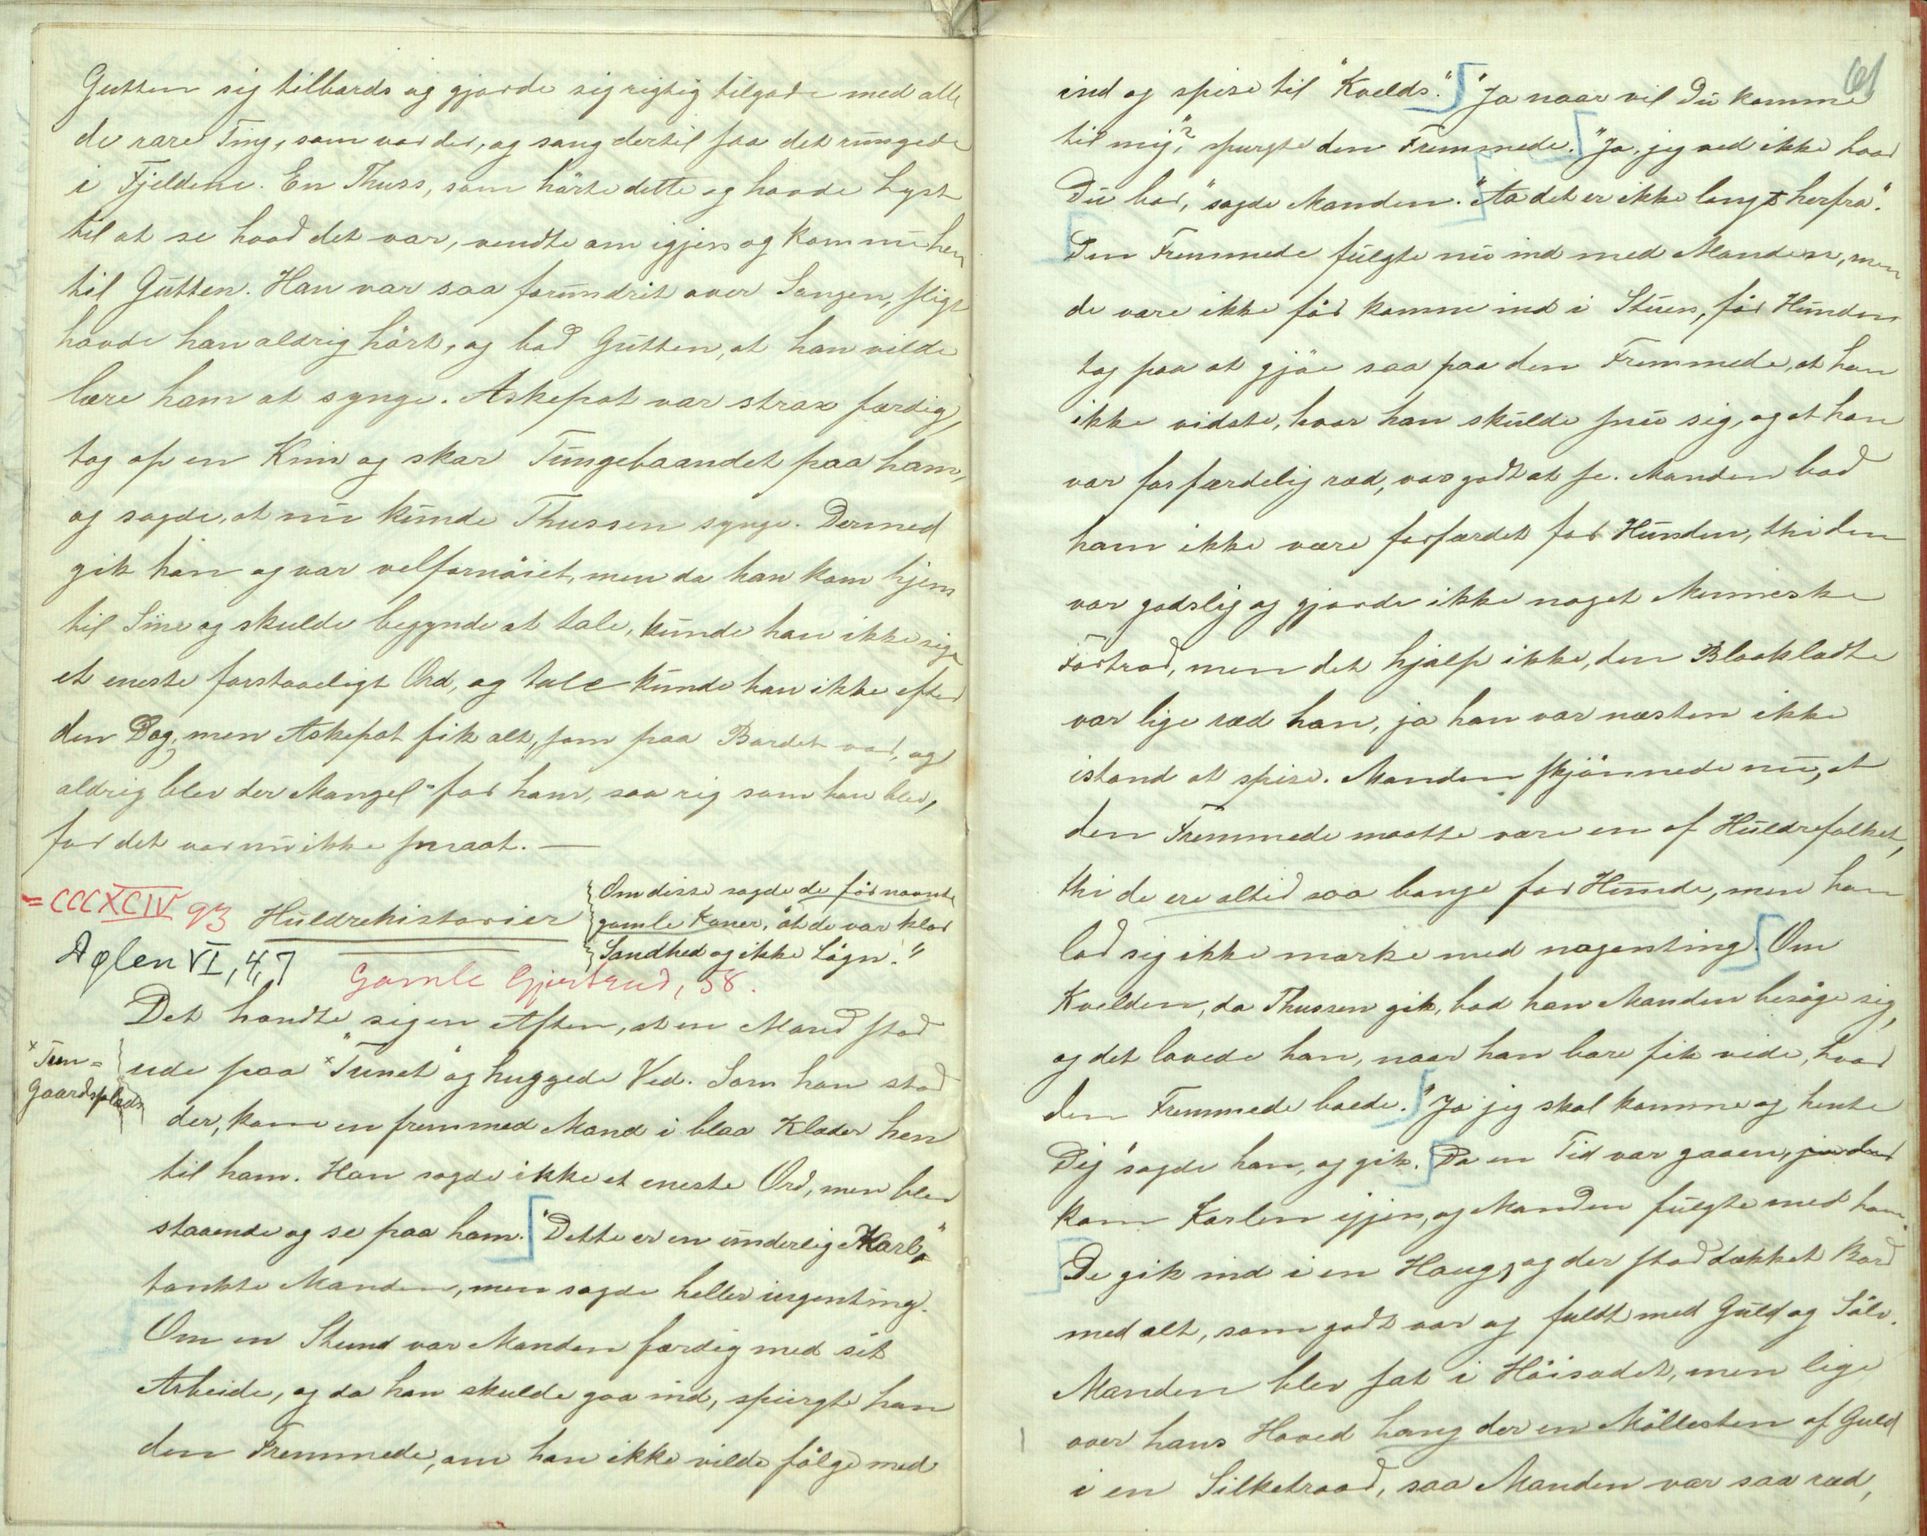 Gutten sig tilbords og gjorde sig rigtig tilgode med alle
de rare Ting, som var der, og sang dertil saa det rungede
i Fjeldene. En Thuss, som hörte dette og havde Lyst
til at se hvad det var, vendte om igjen og kom nu hen
til Gutten. Han var saa forundrit over Sangen, sligt
havde han aldrig hört, og bad Gutten, at han vilde
lære ham at synge. Askepot var strax færdig,
tog op en Kniv og skar Tungebaandet paa ham,
og sagde, at nu kunde Thussen synge. Dermed
gik han og var velfornöiet, men da han kom hjem
til Sine og skulde begynde at tale, kunde han ikke sige
et eneste forstaaeligt Ord, og tale kunde han ikke efter
den Dag, men Askepot fik alt, som paa Bordet var, og
aldrig blev der Mangel for ham, saa rig som han blev,
for det var nu ikke smaat. —
= CCCXCIV 93 Huldrehistorier
Om disse sagde de för nævnte
gamle Koner, "at de var klar
Sandhed og ikke Lögn."
Aølen VI, 4,7
Gamle Gjertrud, 58.
Det hændte sig en Aften, at en Mand stod
ude paa ˣ"Tunet" og huggede Ved. Som han stod
ˣ Tun =
Gaardsplads
der, kom en fremmed Mand i blaa Klæder hen
til ham. Han sagde ikke et eneste Ord, men blev
staaende og se paa ham. "Dette er en underlig Karl,"
tænkte Manden, men sagde heller ingenting.
Om en Stund var Manden færdig med sit
Arbeide, og da han skulde gaa ind, spurgte han
den Fremmede, om han ikke vilde fölge med
61
ind og spise til "Kvelds". "Ja naar vil Du komme
til mig"? spurgte den Fremmede. "Ja, jeg ved ikke hvor
Du bor," sagde Manden. "Aa det er ikke langt herfra".
Den Fremmede fulgte nu ind med Manden, men
de vare ikke för komne ind i Stuen, för Hunden
tog paa at gjö saa paa den Fremmede, at han
ikke vidste, hvor han skulde snu sig, og at han
var forfærdelig ræd, var godt at se. Manden bad
ham ikke være forfærdet for Hunden, thi den
var godslig og gjorde ikke noget Menneske
Fortræd, men det hjalp ikke, den Blaaklædte
var lige ræd han, ja han var næsten ikke
istand at spise. Manden skjönnede nu, at
den Fremmede maatte være en af Huldrefolket,
thi de ere altid saa bange for Hunde, men han
lod sig ikke mærke med nogenting. Om
Kvelden, da Thussen gik, bad han Manden besöge sig,
og det lovede han, naar han bare fik vide, hvor
den Fremmede boede. "Ja jeg skal komme og hente
Dig" sagde han, og gik. Da en Tid var gaaen,
kom Karlen igjen, og Manden fulgte med ham.
De gik ind i en Haug, og der stod dækket Bord
med alt, som godt var og fuldt med Guld og Sölv.
Manden blev sat i Höisædet, men lige
over hans Hoved hang der en Möllesten af Guld
i en Silketraad, saa Manden var saa ræd,